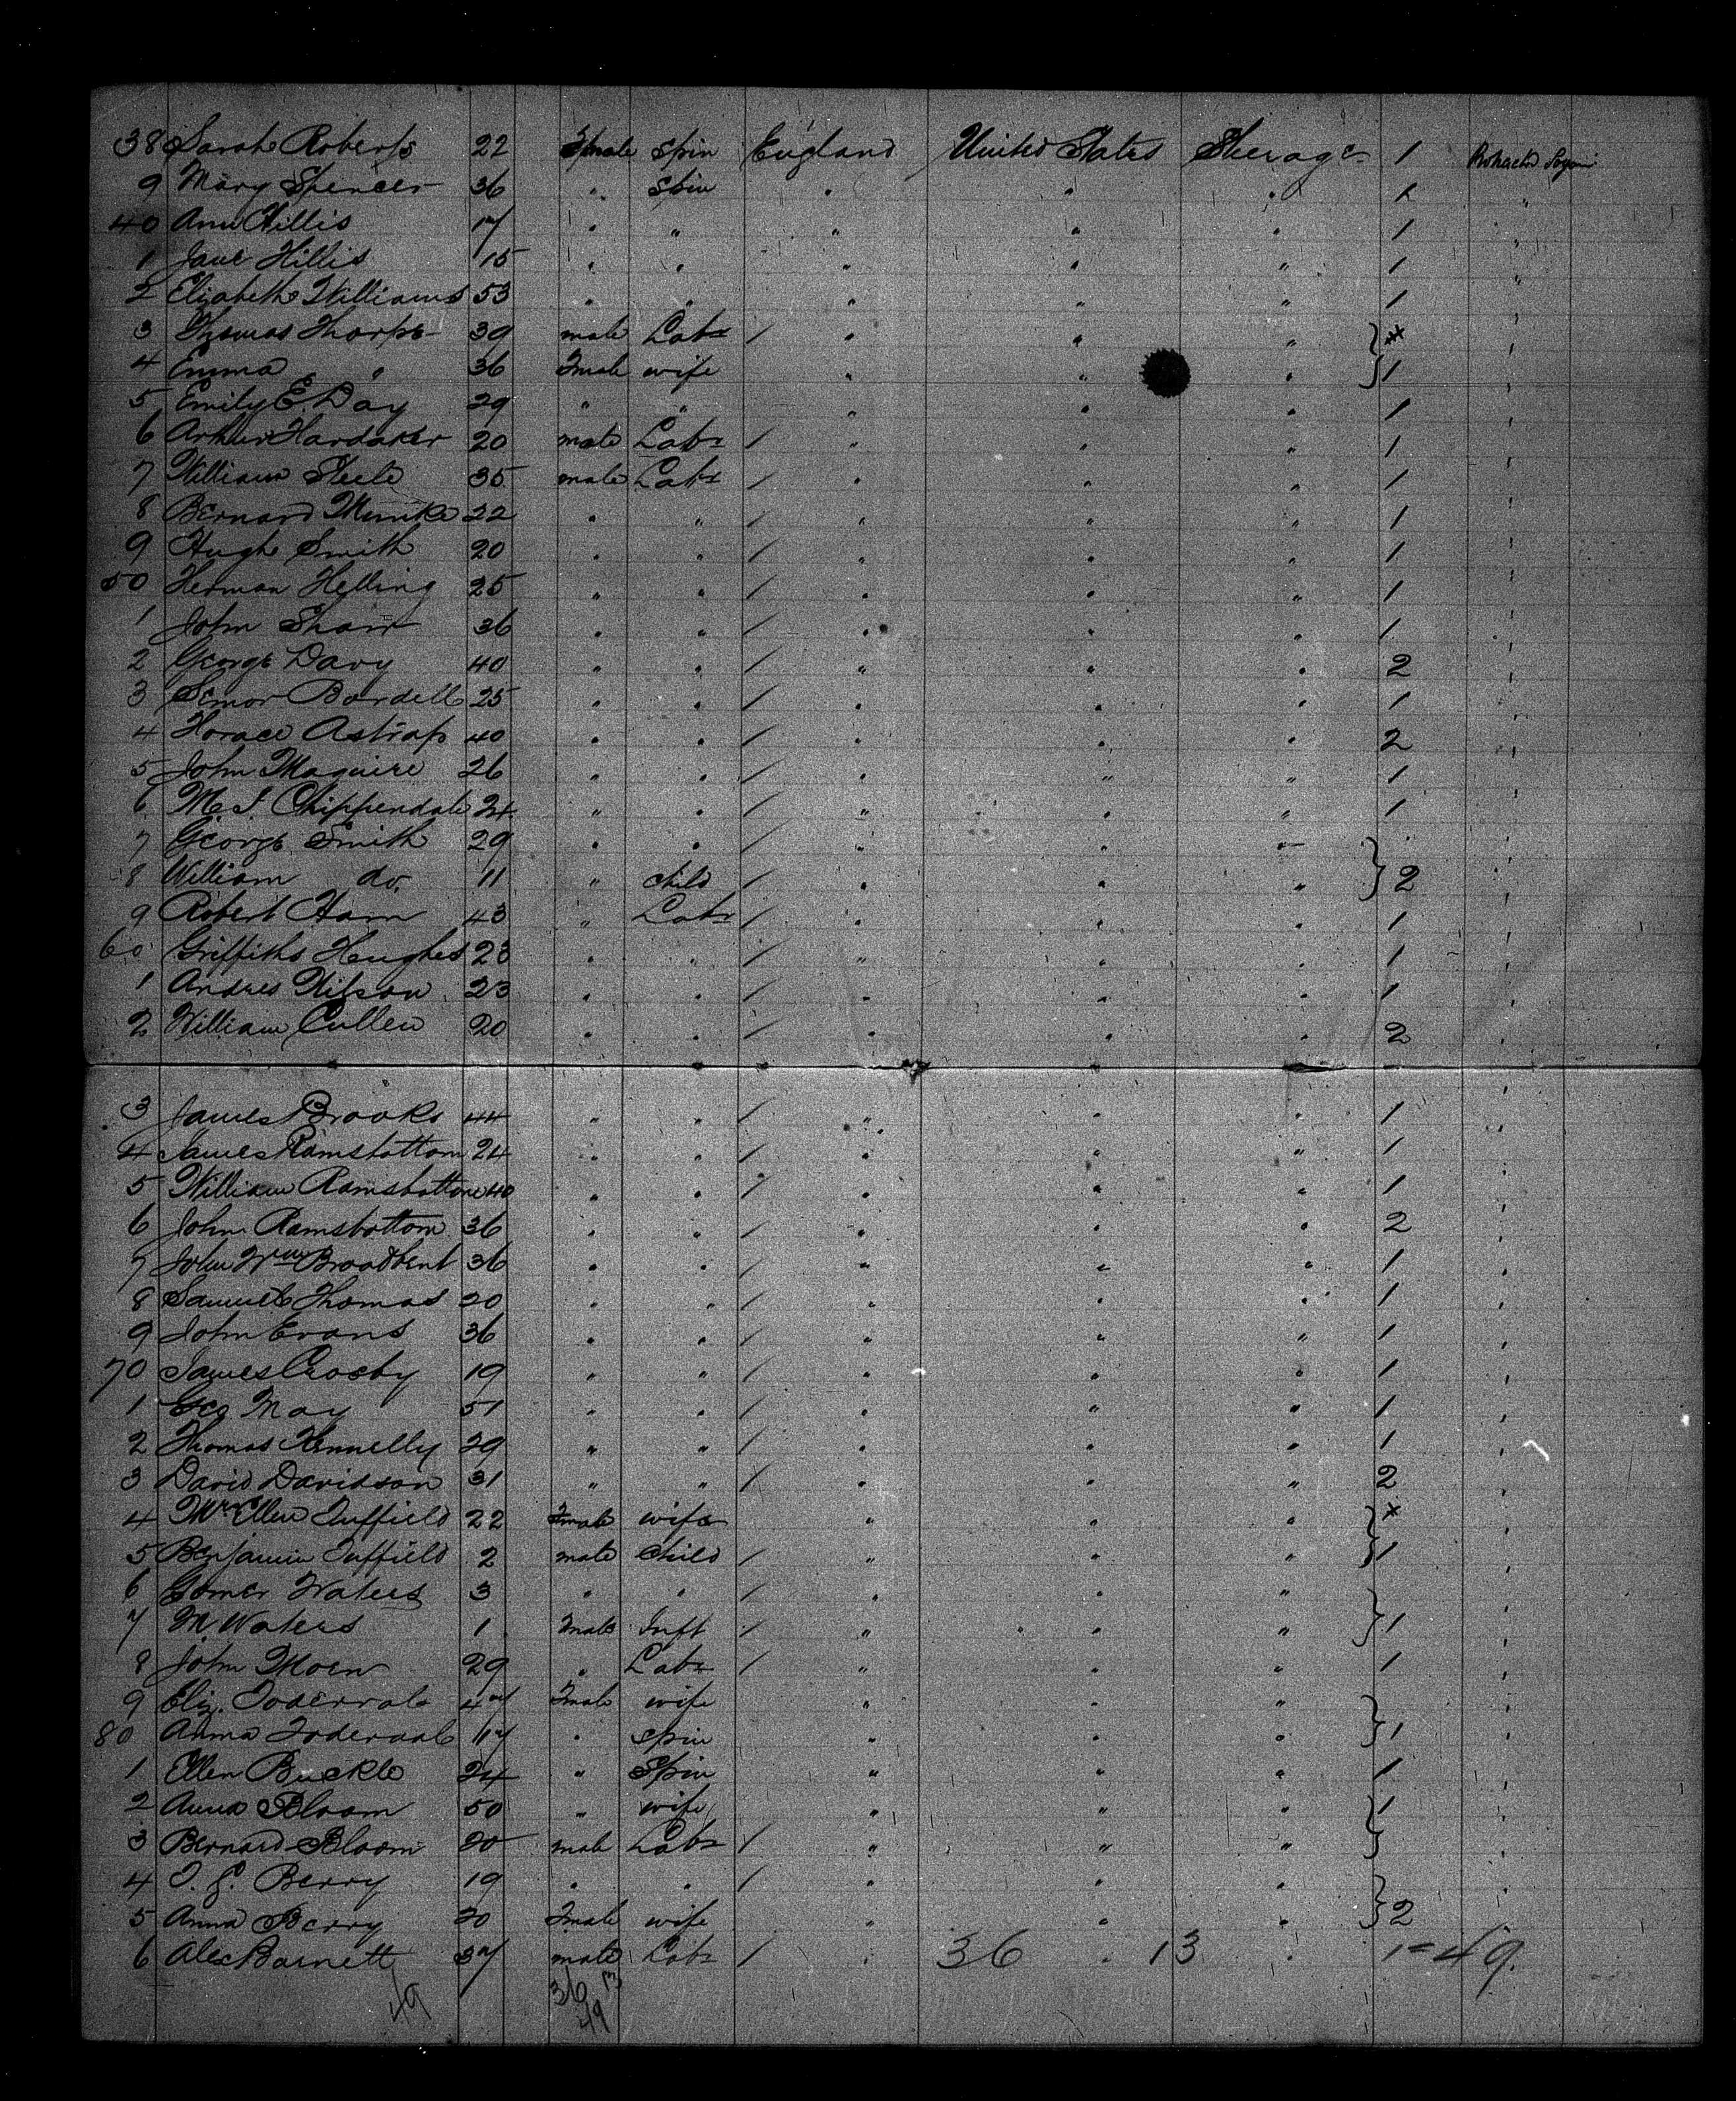 38 Sarah Roberts 22 Fmale Spin England United States Steerage 1 Protracted Sojourn
9 Mary Spencer 36 " Spin " " " 1 "
40 Ann Hillis 17 " " " " " 1 "
1 Jane Hillis 15 " " " " " 1 "
2 Elizabeth Williams 53 " " " " " 1 "
3 Thomas Thorpe 39 male Labr / " " " "
4 Emma " 36 Fmale wife " " " 1 "
5 Emily E. Day 29 " " " " " 1 "
6 Arthur Hardaker 20 male Labr / " " " 1 "
7 William Steele 35 male Labr / " " " 1 "
8 Bernard Menike 22 " " / " " " 1 "
9 Hugh Smith 20 " " / " " " 1 "
50 Herman Helling 25 " " / " " " 1 "
1 John Shaw 36 " " / " " " 1 "
2 George Davy 40 " " / " " " 2 "
3 Semor Bardell 25 " " / " " " 1 "
4 Horace Astrap 40 " " / " " " 2 "
5 John Maguire 26 " " / " " " 1 "
6 M. J. Chippendale 24 " " / " " " 1 "
7 George Smith 29 " " / " " " "
8 William do. 11 " child / " " " 2 "
9 Robert Ham 43 " Labr / " " " 1 "
60 Griffiths Hughes 23 " " / " " " 1 "
1 Andres Wilson 23 " " / " " " 1 "
2 William Cullen 20 " " / " " " 2 "
3 James Brooks 44 " " / " " " 1 "
4 James Ramsbottom 24 " " / " " " 1 "
5 William Ramsbottom 40 " " / " " " 1 "
6 John Ramsbottom 36 " " / " " " 2 "
7 John Wm Broadbent 36 " " / " " " 1 "
8 Samuel Thomas 20 " " / " " " 1 "
9 John Evans 36 " " / " " " 1 "
70 James Crosby 19 " " / " " " 1 "
1 Geo May 51 " " / " " " 1 "
2 Thomas Kennelly 29 " " / " " " 1 "
3 David Davidson 31 " " / " " " 2 "
4 Mrs Ellen Tuffield 22 Fmale wife " " " x "
5 Benjamin Tuffield 2 male child / " " " 1 "
6 Gomer Waters 3 " " / " " " "
7 M. Waters 1 male Inft / " " " 1 "
8 John Moen 29 " Labr / " " " 1 "
9 Eliz. 47 Fmale wife " " " "
80 Anna 17 " Spin " " " 1 "
1 Ellen Buckle 24 " Spin " " " 1 "
2 Anna Bloom 50 " wife " " " 1 "
3 Bernard Bloom 20 male Labr / " " " "
4 J. G. Berry 19 " " / " " " "
5 Anna Berry 20 Fmale wife " " " 2 "
6 Alex Barnett 37 male Labr / " 36 " 13 " 1 = 49.
49 36 13
49